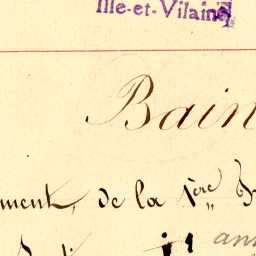 Ille-et-Vilaine
Bain
ment, de la 1ère
ann